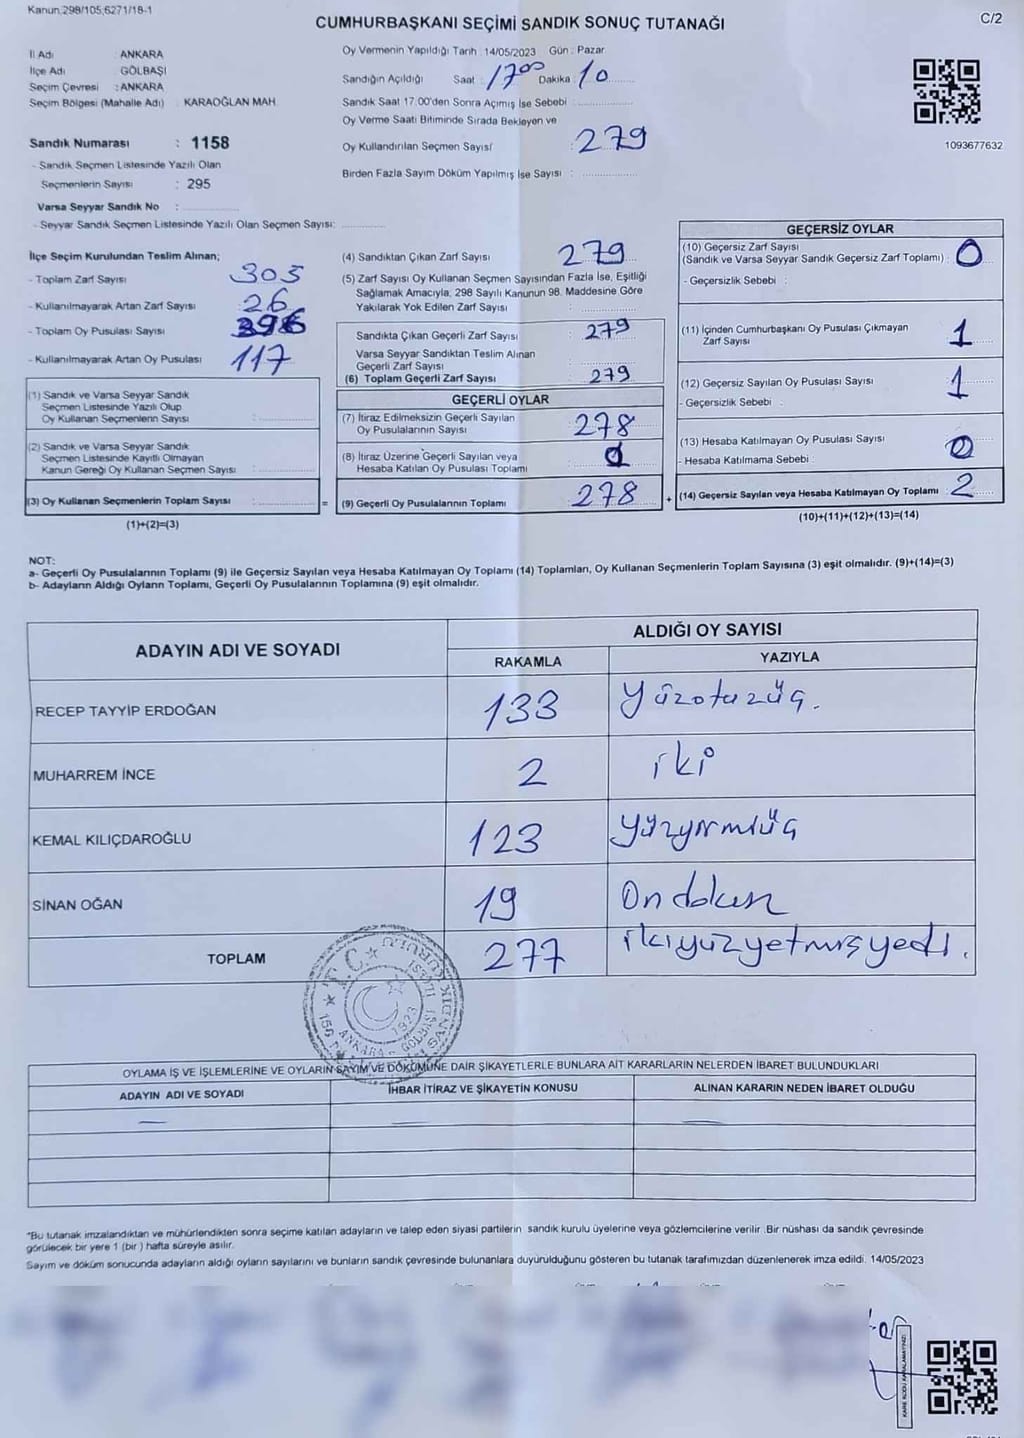 Kanun:298/105,6271/18-1
C/2
CUMHURBAŞKANI SEÇİMİ SANDIK SONUÇ TUTANAĞI
İl Adı : ANKARA
İlçe Adı : GÖLBAŞI
Seçim Çevresi : ANKARA
Seçim Bölgesi (Mahalle Adı) : KARAOĞLAN MAH.
Sandık Numarası : 1158
- Sandık Seçmen Listesinde Yazılı Olan
Seçmenlerin Sayısı : 295
Varsa Seyyar Sandık No :
- Seyyar Sandık Seçmen Listesinde Yazılı Olan Seçmen Sayısı:
Oy Vermenin Yapıldığı Tarih : 14/05/2023 Gün : Pazar
Sandığın Açıldığı Saat : 17⁰⁰ Dakika : 10
Sandık Saat 17.00'den Sonra Açılmış İse Sebebi :
Oy Verme Saati Bitiminde Sırada Bekleyen ve
Oy Kullandırılan Seçmen Sayısı : 279
Birden Fazla Sayım Döküm Yapılmış İse Sayısı :
1093677632
İlçe Seçim Kurulundan Teslim Alınan;
- Toplam Zarf Sayısı 305
- Kullanılmayarak Artan Zarf Sayısı 26
- Toplam Oy Pusulası Sayısı 396
- Kullanılmayarak Artan Oy Pusulası 117
(1) Sandık ve Varsa Seyyar Sandık
Seçmen Listesinde Yazılı Olup
Oy Kullanan Seçmenlerin Sayısı :
(2) Sandık ve Varsa Seyyar Sandık
Seçmen Listesinde Kayıtlı Olmayan
Kanun Gereği Oy Kullanan Seçmen Sayısı :
(3) Oy Kullanan Seçmenlerin Toplam Sayısı : =
(1)+(2)=(3)
(4) Sandıktan Çıkan Zarf Sayısı : 279
(5) Zarf Sayısı Oy Kullanan Seçmen Sayısından Fazla İse, Eşitliği
Sağlamak Amacıyla, 298 Sayılı Kanunun 98. Maddesine Göre
Yakılarak Yok Edilen Zarf Sayısı :
Sandıkta Çıkan Geçerli Zarf Sayısı : 279
Varsa Seyyar Sandıktan Teslim Alınan
Geçerli Zarf Sayısı :
(6) Toplam Geçerli Zarf Sayısı : 279
GEÇERLİ OYLAR
(7) İtiraz Edilmeksizin Geçerli Sayılan
Oy Pusulalarının Sayısı : 278
(8) İtiraz Üzerine Geçerli Sayılan veya
Hesaba Katılan Oy Pusulası Toplamı :
(9) Geçerli Oy Pusulalarının Toplamı : 278 +
GEÇERSİZ OYLAR
(10) Geçersiz Zarf Sayısı
(Sandık ve Varsa Seyyar Sandık Geçersiz Zarf Toplamı) : 0
- Geçersizlik Sebebi :
(11) İçinden Cumhurbaşkanı Oy Pusulası Çıkmayan
Zarf Sayısı : 1
(12) Geçersiz Sayılan Oy Pusulası Sayısı : 1
- Geçersizlik Sebebi :
(13) Hesaba Katılmayan Oy Pusulası Sayısı : 0
- Hesaba Katılmama Sebebi :
(14) Geçersiz Sayılan veya Hesaba Katılmayan Oy Toplamı : 2
(10)+(11)+(12)+(13)=(14)
NOT:
a- Geçerli Oy Pusulalarının Toplamı (9) ile Geçersiz Sayılan veya Hesaba Katılmayan Oy Toplamı (14) Toplamları, Oy Kullanan Seçmenlerin Toplam Sayısına (3) eşit olmalıdır. (9)+(14)=(3)
b- Adayların Aldığı Oyların Toplamı, Geçerli Oy Pusulalarının Toplamına (9) eşit olmalıdır.
ADAYIN ADI VE SOYADI ALDIĞI OY SAYISI
RAKAMLA YAZIYLA
RECEP TAYYİP ERDOĞAN 133 Yüzotuzüç.
MUHARREM İNCE 2 iki
KEMAL KILIÇDAROĞLU 123 Yüzyirmiüç
SİNAN OĞAN 19 Ondokuz
TOPLAM 277 ikiyüzyetmişyedi.
T.C.
1923
OYLAMA İŞ VE İŞLEMLERİNE VE OYLARIN SAYIM VE DÖKÜMÜNE DAİR ŞİKAYETLERLE BUNLARA AİT KARARLARIN NELERDEN İBARET BULUNDUKLARI
ADAYIN ADI VE SOYADI İHBAR İTİRAZ VE ŞİKAYETİN KONUSU ALINAN KARARIN NEDEN İBARET OLDUĞU
*Bu tutanak imzalandıktan ve mühürlendikten sonra seçime katılan adayların ve talep eden siyasi partilerin sandık kurulu üyelerine veya gözlemcilerine verilir. Bir nüshası da sandık çevresinde
görülecek bir yere 1 (bir) hafta süreyle asılır.
Sayım ve döküm sonucunda adayların aldığı oyların sayılarını ve bunların sandık çevresinde bulunanlara duyurulduğunu gösteren bu tutanak tarafımızdan düzenlenerek imza edildi. 14/05/2023
KARE KODU KARALAMAYINIZ!